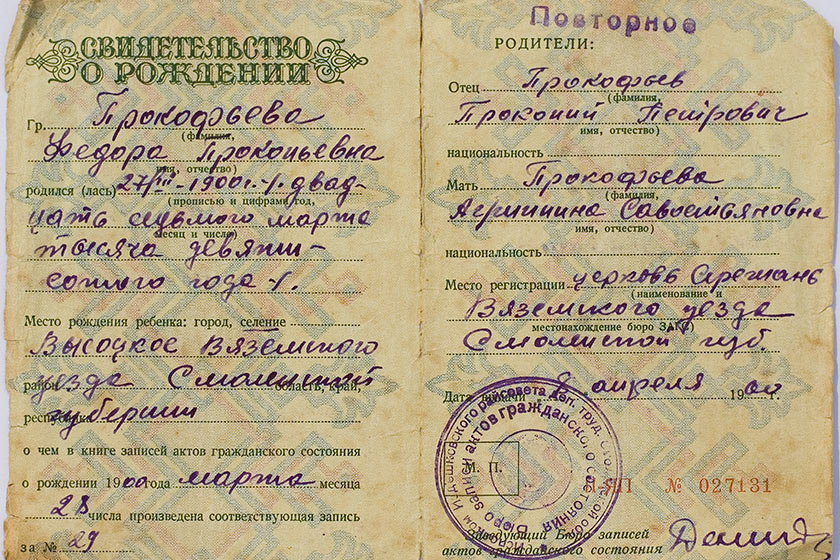 СВИДЕТЕЛЬСТВО
О РОЖДЕНИИ
Гр. Прокофьева
(фамилия,
Федора Прокопьевна
имя, отчество)
родился (лась) 27/III-1900 г. двад-
(прописью и цифрами год,
цать седьмого марта
месяц и число)
тысяча девяти-
сотого года
Место рождения ребенка: город, селение
Высоцкое Вяземского
район уезда Смоленской область, край,
республика губернии
о чем в книге записей актов гражданского состояния
о рождении 1900 года марта месяца
28 числа произведена соответствующая запись
за № 29
Повторное
РОДИТЕЛИ:
Отец Прокофьев
(фамилия,
Прокопий Петрович
имя, отчество)
национальность
Мать Прокофьева
(фамилия,
Агриппина Савостьяновна
имя, отчество)
национальность
Место регистрации церковь
(наименование и
Вяземского уезда
местонахождение бюро ЗАГС)
Смоленской губ.
Дата выдачи 8 апреля 19 г.
М. П.
райсовета деп. труд.
Бюро записи актов гражданского состояния
ЯП № 027131
Заведующий Бюро записей
актов гражданского состояния